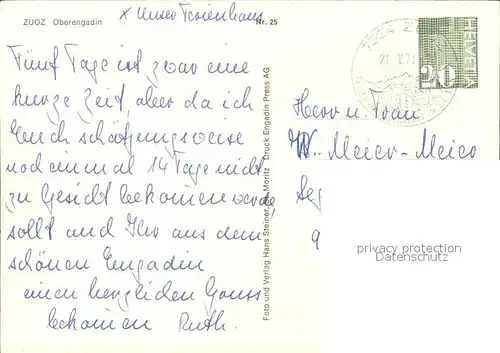 x Unser Ferienhaus
ZUOZ Oberengadin
Nr. 25
HELVETIA
20
Fünf Tage ist zwar eine
kurze Zeit, aber da ich
Euch schätzungsweise
noch einmal 14 Tage nicht
zu Gesicht bekommen werde,
sollt auch Ihr aus dem
schönen Engadin
einen herzlichen Gruss
bekommen Ruth.
Foto und Verlag Hans Steiner, St. Moritz Druck Engadin Press AG
Herr u. Frau
W. Meier-Meier
Seg
9
privacy protection
Datenschutz